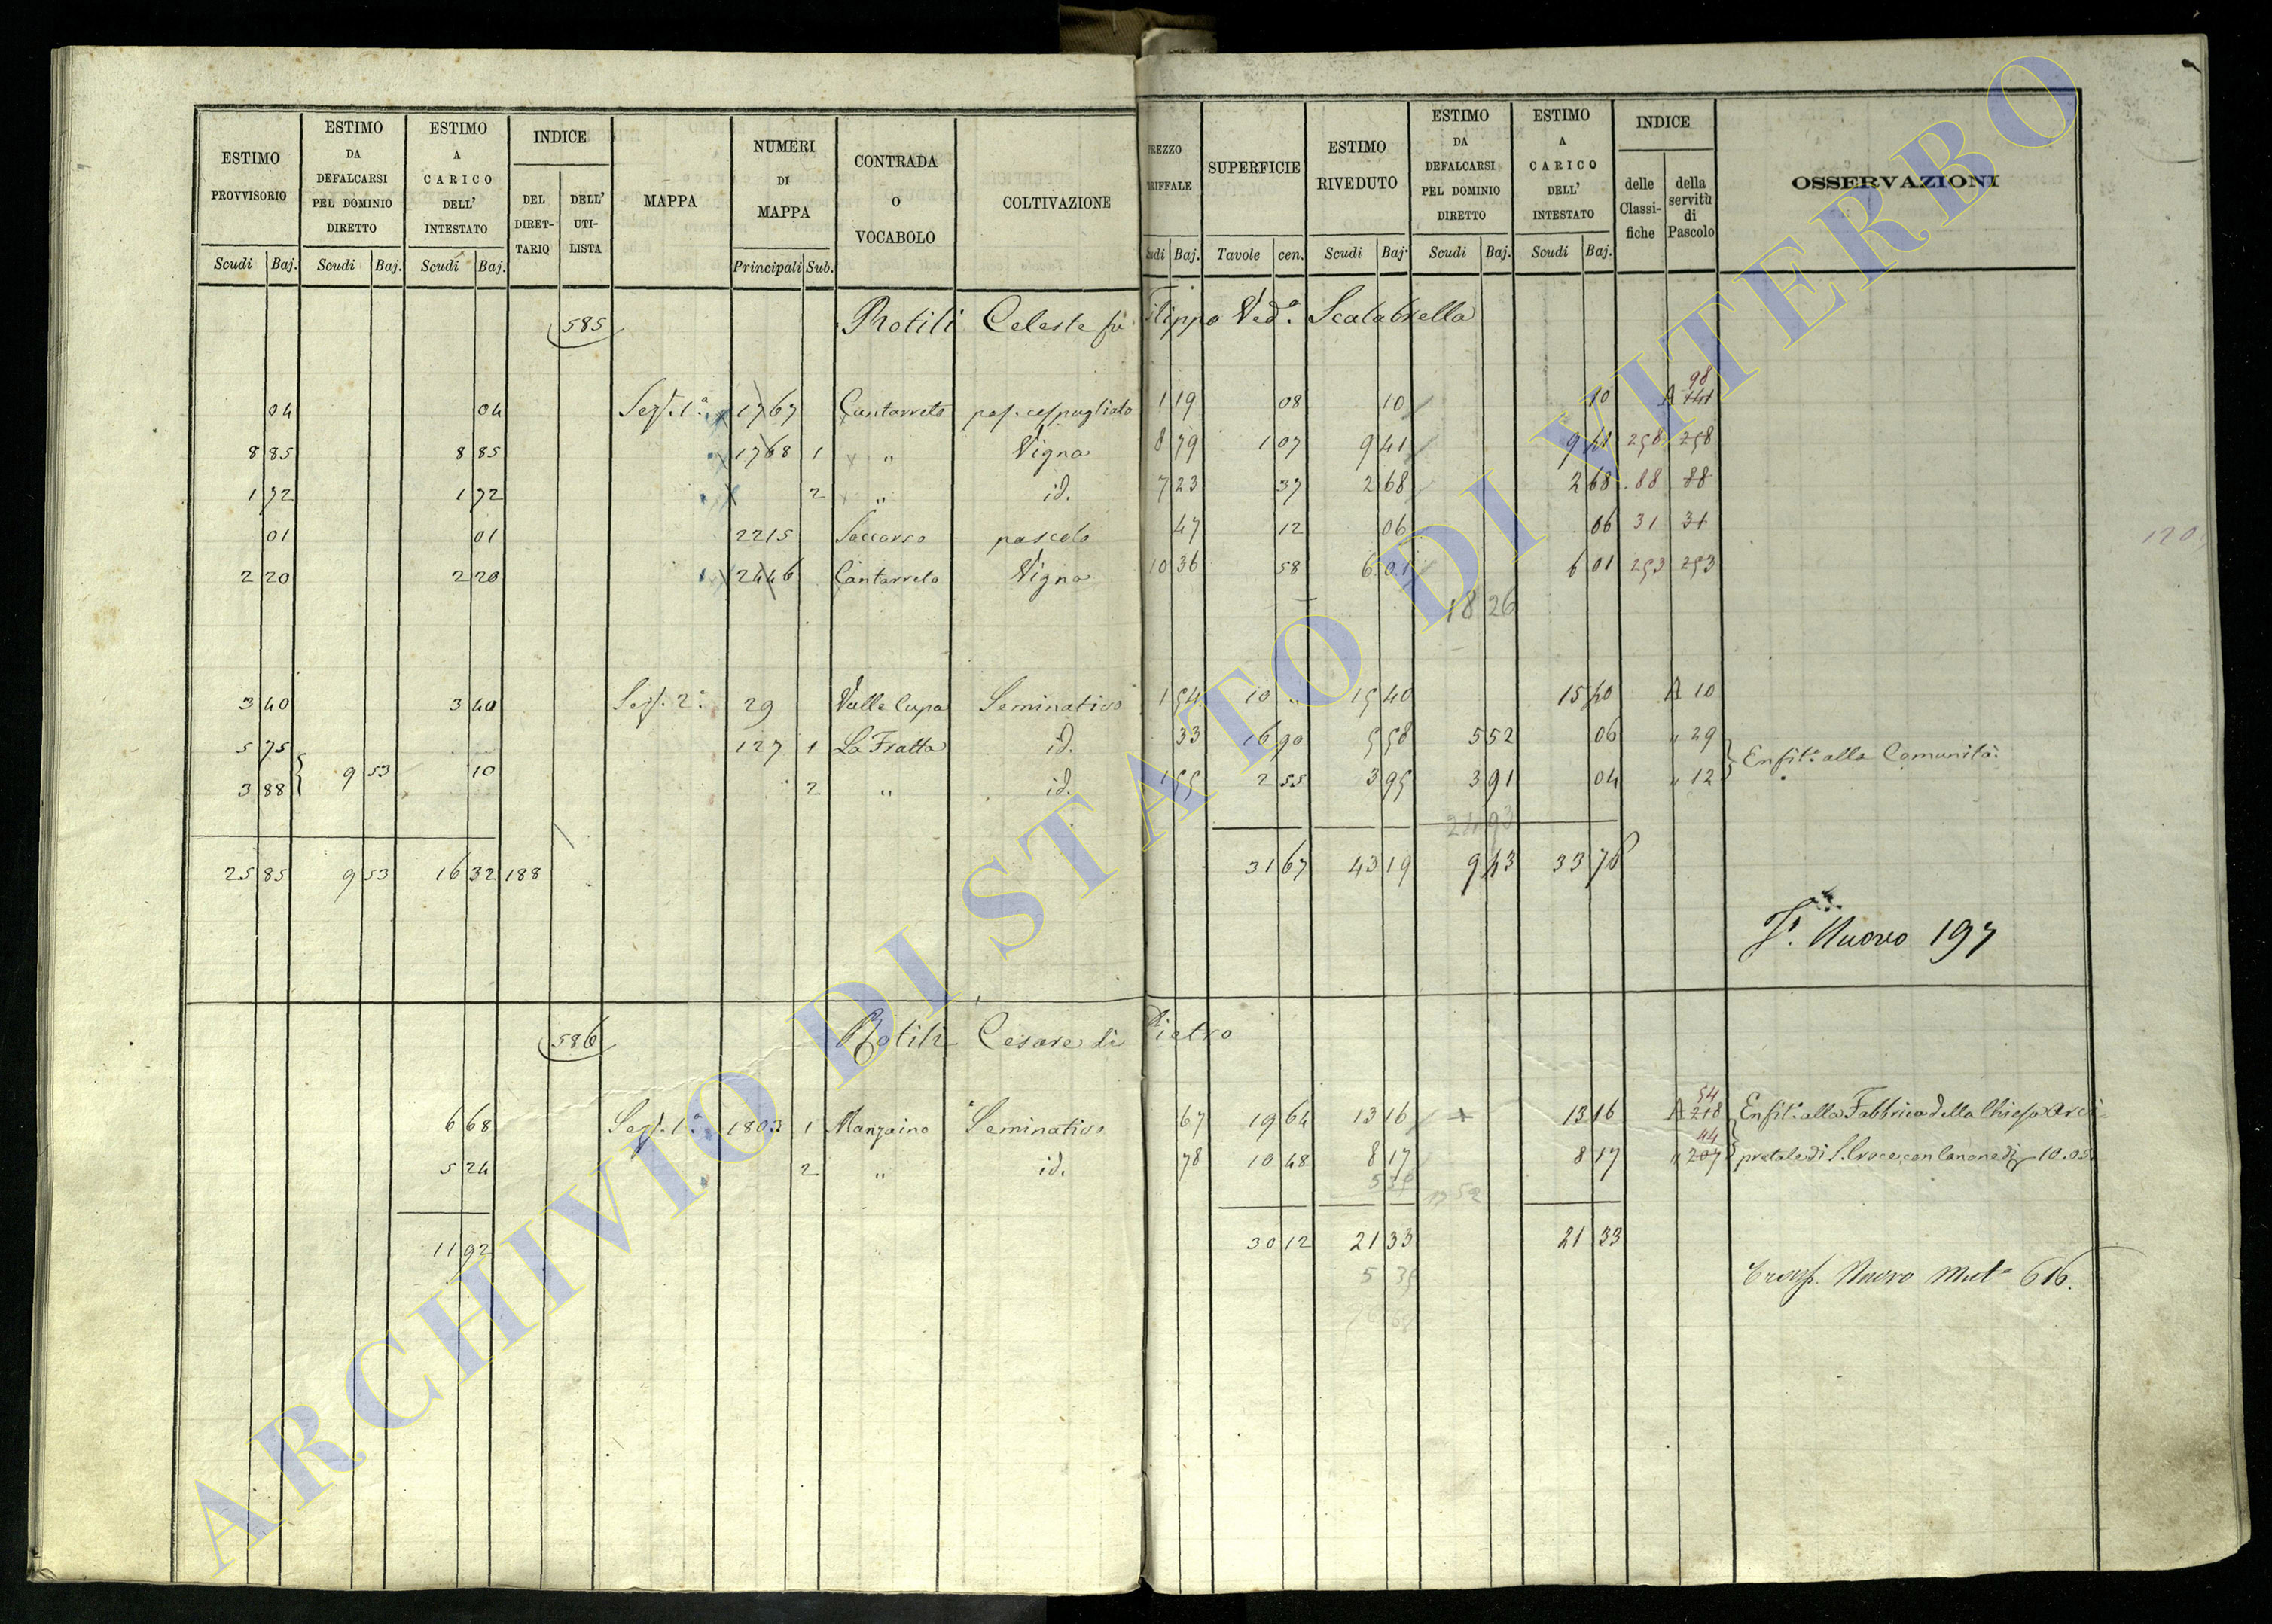 ESTIMO PROVVISORIO | ESTIMO DA DEFALCARSI PEL DOMINIO DIRETTO | ESTIMO A CARICO DELL' INTESTATO | INDICE | MAPPA | NUMERI DI MAPPA | CONTRADA O VOCABOLO | COLTIVAZIONE | PREZZO TARIFFALE | SUPERFICIE | ESTIMO RIVEDUTO | ESTIMO DA DEFALCARSI PEL DOMINIO DIRETTO | ESTIMO A CARICO DELL' INTESTATO | INDICE | OSSERVAZIONI
DEL DIRETTARIO | DELL' UTILISTA | delle Classifiche | della servitù di Pascolo
Scudi Baj. | Scudi Baj. | Scudi Baj. | Principali Sub. | Scudi Baj. | Tavole cen. | Scudi Baj. | Scudi Baj. | Scudi Baj.
585 Rotili Celeste fu Filippo Ved.ª Scalabrella
04 | 04 | Sez. 1ª | 1767 | Cantarreto | pas. cespugliato | 1 19 | 08 | 10 | 10 | A 98 141
8 85 | 8 85 | 1768 1 | " | Vigna | 8 79 | 1 07 | 9 41 | 9 41 | 258 | 258
1 72 | 1 72 | 2 | " | id. | 7 23 | 37 | 2 68 | 2 68 | 88 | 88
01 | 01 | 2215 | Soccorso | pascolo | 47 | 12 | 06 | 06 | 31 | 31
2 20 | 2 20 | 2446 | Cantarreto | Vigna | 10 36 | 58 | 6 01 | 6 01 | 253 | 253
18 26
3 40 | 3 40 | Sez. 2ª | 29 | Valle Cupa | Seminativo | 1 54 | 10 " | 15 40 | 15 40 | A 10
5 75 | 127 1 | La Fratta | id. | 33 | 16 90 | 5 58 | 5 52 | 06 | " 29
9 53 | 10 | Enfit.ª alla Comunità
3 88 | 2 | " | id. | 1 55 | 2 55 | 3 95 | 3 91 | 04 | " 12
24 93
25 85 | 9 53 | 16 32 | 188 | 31 67 | 43 19 | 9 43 | 33 76
T. Nuovo 197
586 Rotili Cesare di Pietro
6 68 | Sez. 1ª | 1803 1 | Manzaino | Seminativo | 67 | 19 64 | 13 16 | 13 16 | A 54 218 | Enfit.ª alla Fabbrica della Chiesa Arci-
5 24 | 2 | " | id. | 78 | 10 48 | 8 17 | 8 17 | " 44 207 | pretale di S. Croce, con Canone di 10.05
11 92 | 30 12 | 21 33 | 21 33
5 35
Trasp. Nuovo Mut.ª 616.
120
ARCHIVIO DI STATO DI VITERBO